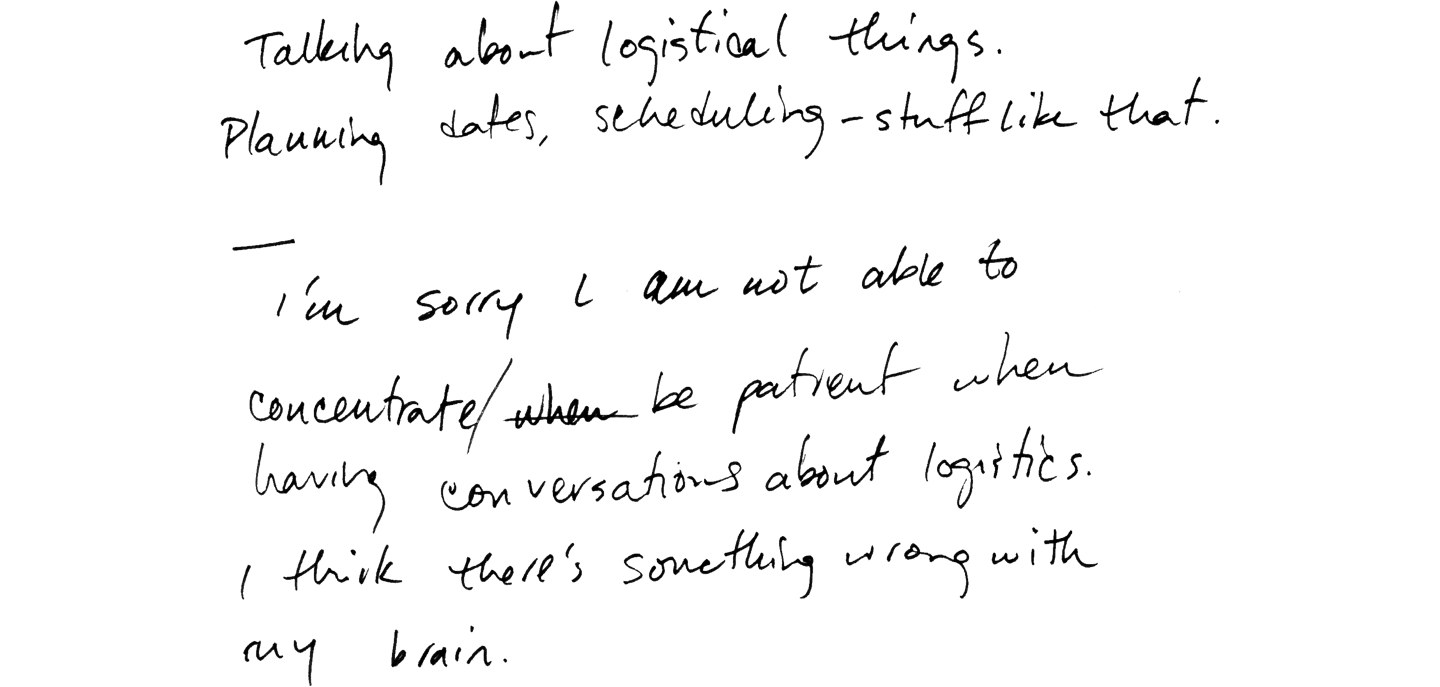 Talking about logistical things.
Planning dates, scheduling – stuff like that.
—
I'm sorry I am not able to
concentrate/ when be patient when
having conversations about logistics.
I think there's something wrong with
my brain.